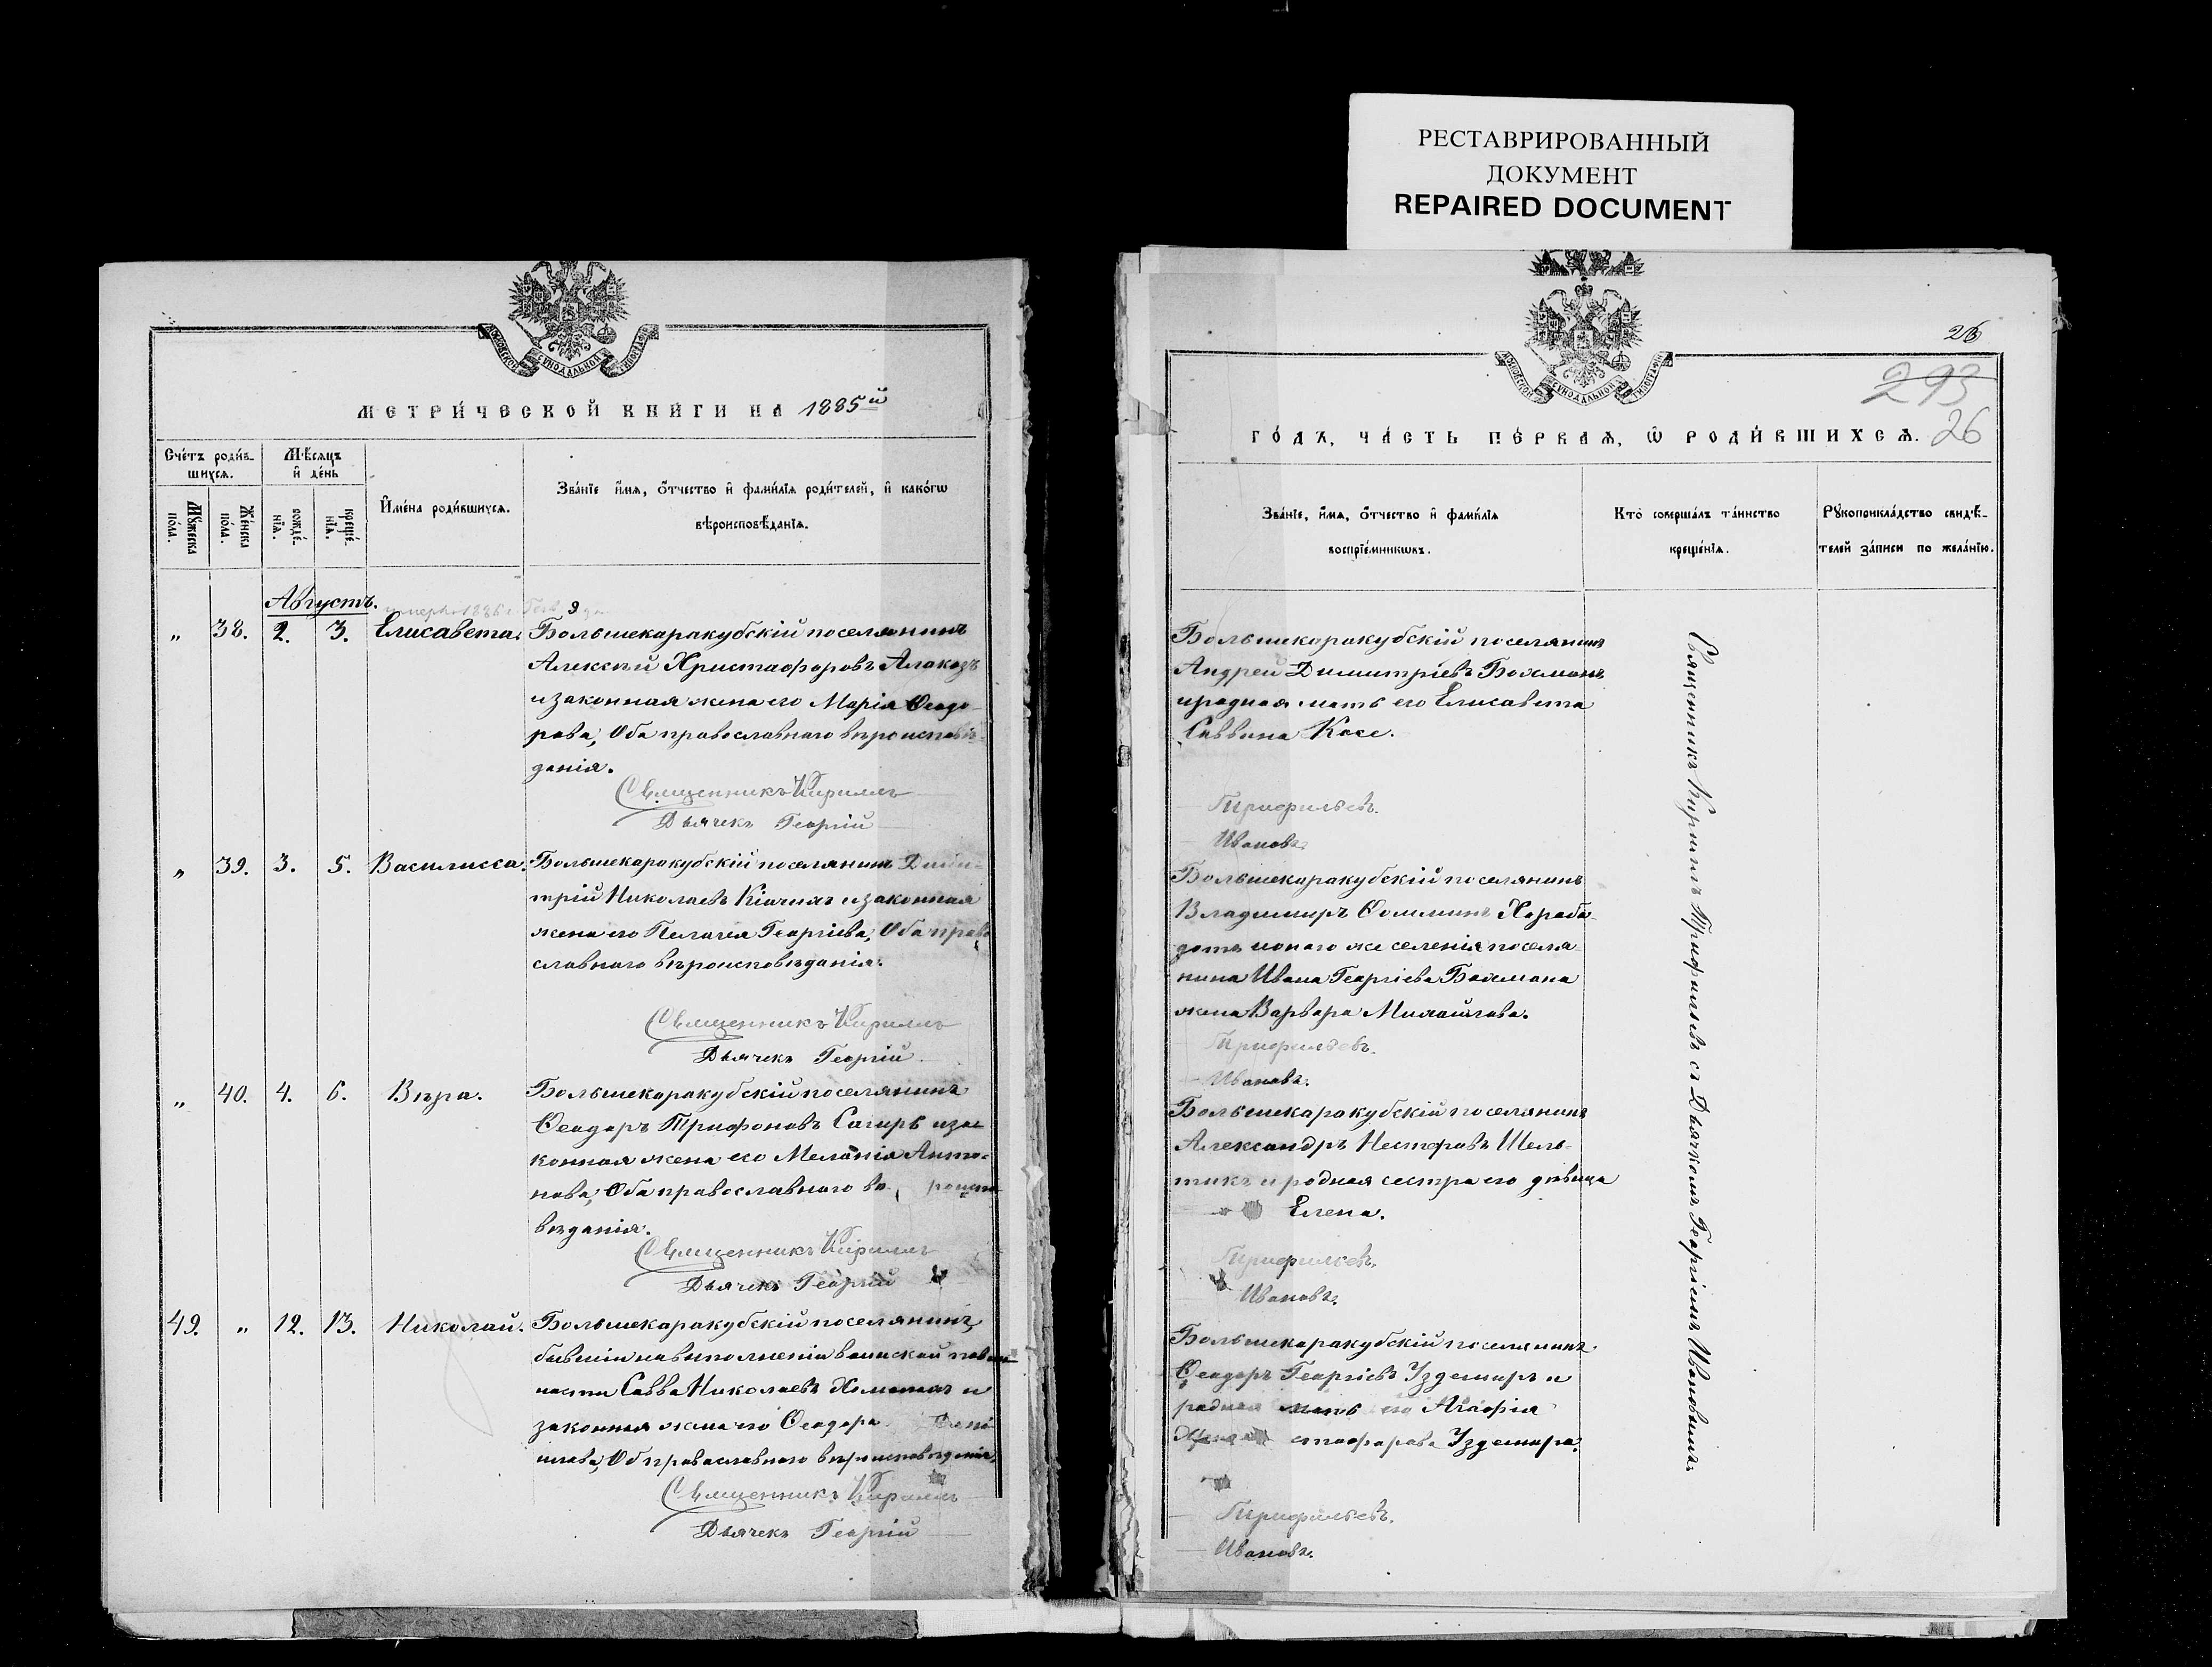 РЕСТАВРИРОВАННЫЙ
ДОКУМЕНТ
REPAIRED DOCUMENT
МОСКОВСКОЙ СУНОДАЛЬНОЙ ТИПОГРАФІИ
МЕТРИ́ЧЕСКОЙ КНИ́ГИ НА 1885й
Сче́тъ роди́в-
шихсѧ.
Мѣ́сѧцъ
и҆ де́нь
Мꙋ́жеска
по́ла.
Же́нска
по́ла.
рожде́-
нїѧ.
креще́-
нїѧ.
И҆мена̀ роди́вшихсѧ.
Зва́нїе и҆́мѧ, ѻ҆́тчество и҆ фами́лїѧ роди́телей, и҆ како́гѡ
вѣроисповѣ́данїѧ.
Августъ.
„ 38. 2. 3. Елисавета. Большекаракубскій поселянинъ
Алексѣй Христофоровъ Алакозъ
и законная жена его Марія Ѳеодо-
рова, Оба православнаго вѣроисповѣ-
данія.
Священникъ Кириллъ
Дьячекъ Георгій
„ 39. 3. 5. Василисса. Большекаракубскій поселянинъ Дими-
трій Николаевъ и законная
жена его Пелагія Георгіева, Оба право
славнаго вѣроисповѣданія.
Священникъ Кириллъ
Дьячекъ Георгій
„ 40. 4. 6. Вѣра. Большекаракубскій поселянинъ
Ѳеодоръ Трифоновъ Сагиръ и за-
конная жена его Меланія Анто-
нова, Оба православнаго вѣ роиспо
вѣданія.
Священникъ Кириллъ
Дьячекъ Георгій
49. „ 12. 13. Николай. Большекаракубскій поселянинъ,
бывшій на выполненіи воинской повин
ности Савва Николаевъ и
законная жена его Ѳеодора
Оба православнаго вѣроисповѣданія
Священникъ Кириллъ
Дьячекъ Георгій
МОСКОВСКОЙ СУНОДАЛЬНОЙ ТИПОГРАФІИ
26
293
26
ГО́ДЪ, ЧА́СТЬ ПЕ́РВАѦ, Ѡ҆ РОДИ́ВШИХСѦ.
Зва́нїе, и҆́мѧ, ѻ҆́тчество и҆ фами́лїѧ
воспрїе́мникѡвъ.
Кто̀ соверша́лъ та́инство
креще́нїѧ.
Рꙋкоприкла́дство свидѣ́-
телей за́писи по жела́нїю.
Большекаракубскій поселянинъ
Андрей Димитріевъ Бахманъ
и родная мать его Елисавета
Саввина Косе.
Трифильевъ.
Ивановъ.
Большекаракубскій поселянинъ
Владимиръ Ѳоминъ Хараба-
датъ и онаго же селенія поселя-
нина Ивана Георгіева Бахмана
жена Варвара Михайлова.
Трифильевъ.
Ивановъ.
Большекаракубскій поселянинъ
Александръ Несторовъ Шель-
тикъ и родная сестра его дѣвица
Елена.
Трифильевъ.
Ивановъ.
Большекаракубскій поселянинъ
Ѳеодоръ Георгіевъ Уздемиръ и
родная мать его Агафія
стофорова Уздемиръ.
Трифильевъ.
Ивановъ.
Священникъ Кириллъ Трифильевъ съ Дьячкомъ Георгіемъ Ивановымъ.